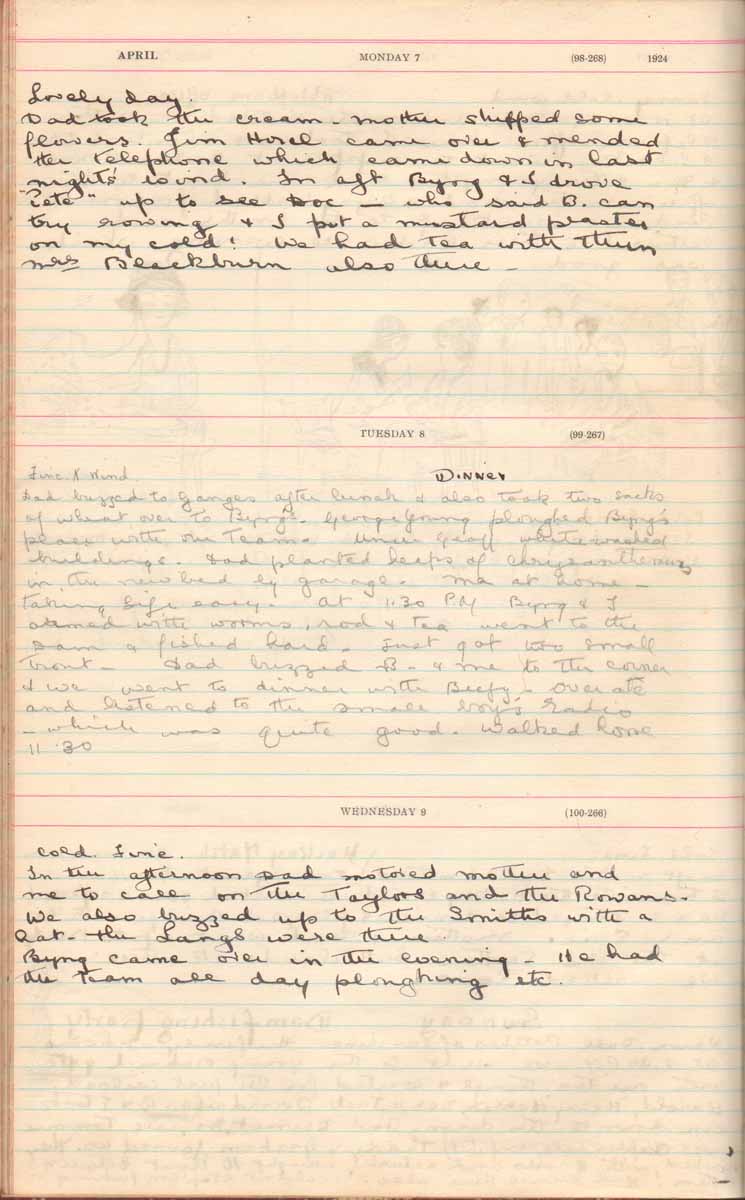 APRIL MONDAY 7 (98-268) 1924
Lovely day.
Dad took the cream - mother shipped some
flowers. Jim Horel came over & mended
the telephone which came down in last
night's wind. In aft Byng & I drove
"Pete" up to see Doc - who said B. can
try rowing & I put a mustard plaster
on my cold! We had tea with them
Mrs Blackburn also there -
TUESDAY 8 (99-267)
Fine. N Wind. DINNER
Dad buzzed to Ganges after lunch & also took two sacks
of wheat over to Byng's. George Young ploughed Byng's
place with our team. Uncle Geoff whitewashed
buildings. Dad planted heaps of Chrysanthemums
in the new bed by garage. Ma at home -
taking life easy. At 1.30 PM Byng & I
armed with worms, rod & tea went to the
dam & fished hard. Just got two small
trout - Dad buzzed B. & me to the corner
& we went to dinner with Beefy - over ate
and listened to the small boy's Radio
- which was quite good. Walked home
11.30
WEDNESDAY 9 (100-266)
Cold. Fine.
In the afternoon Dad motored mother and
me to call on the Taylors and the Rowans.
We also buzzed up to the Smiths with a
cat - the Langs were there.
Byng came over in the evening - He had
the team all day ploughing etc.